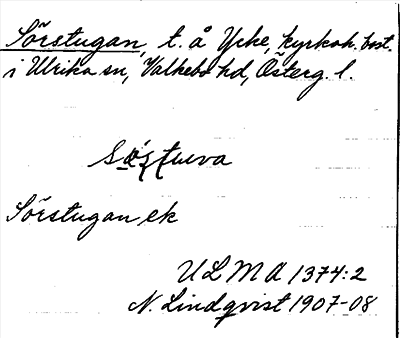 Sörstugan, t. å Ycke, kyrkoh. bost.
i Ulrika sn, Valkebo hd, Österg. l.
Sörstugan ek
ULMA 1374:2
N. Lindqvist 1907-08